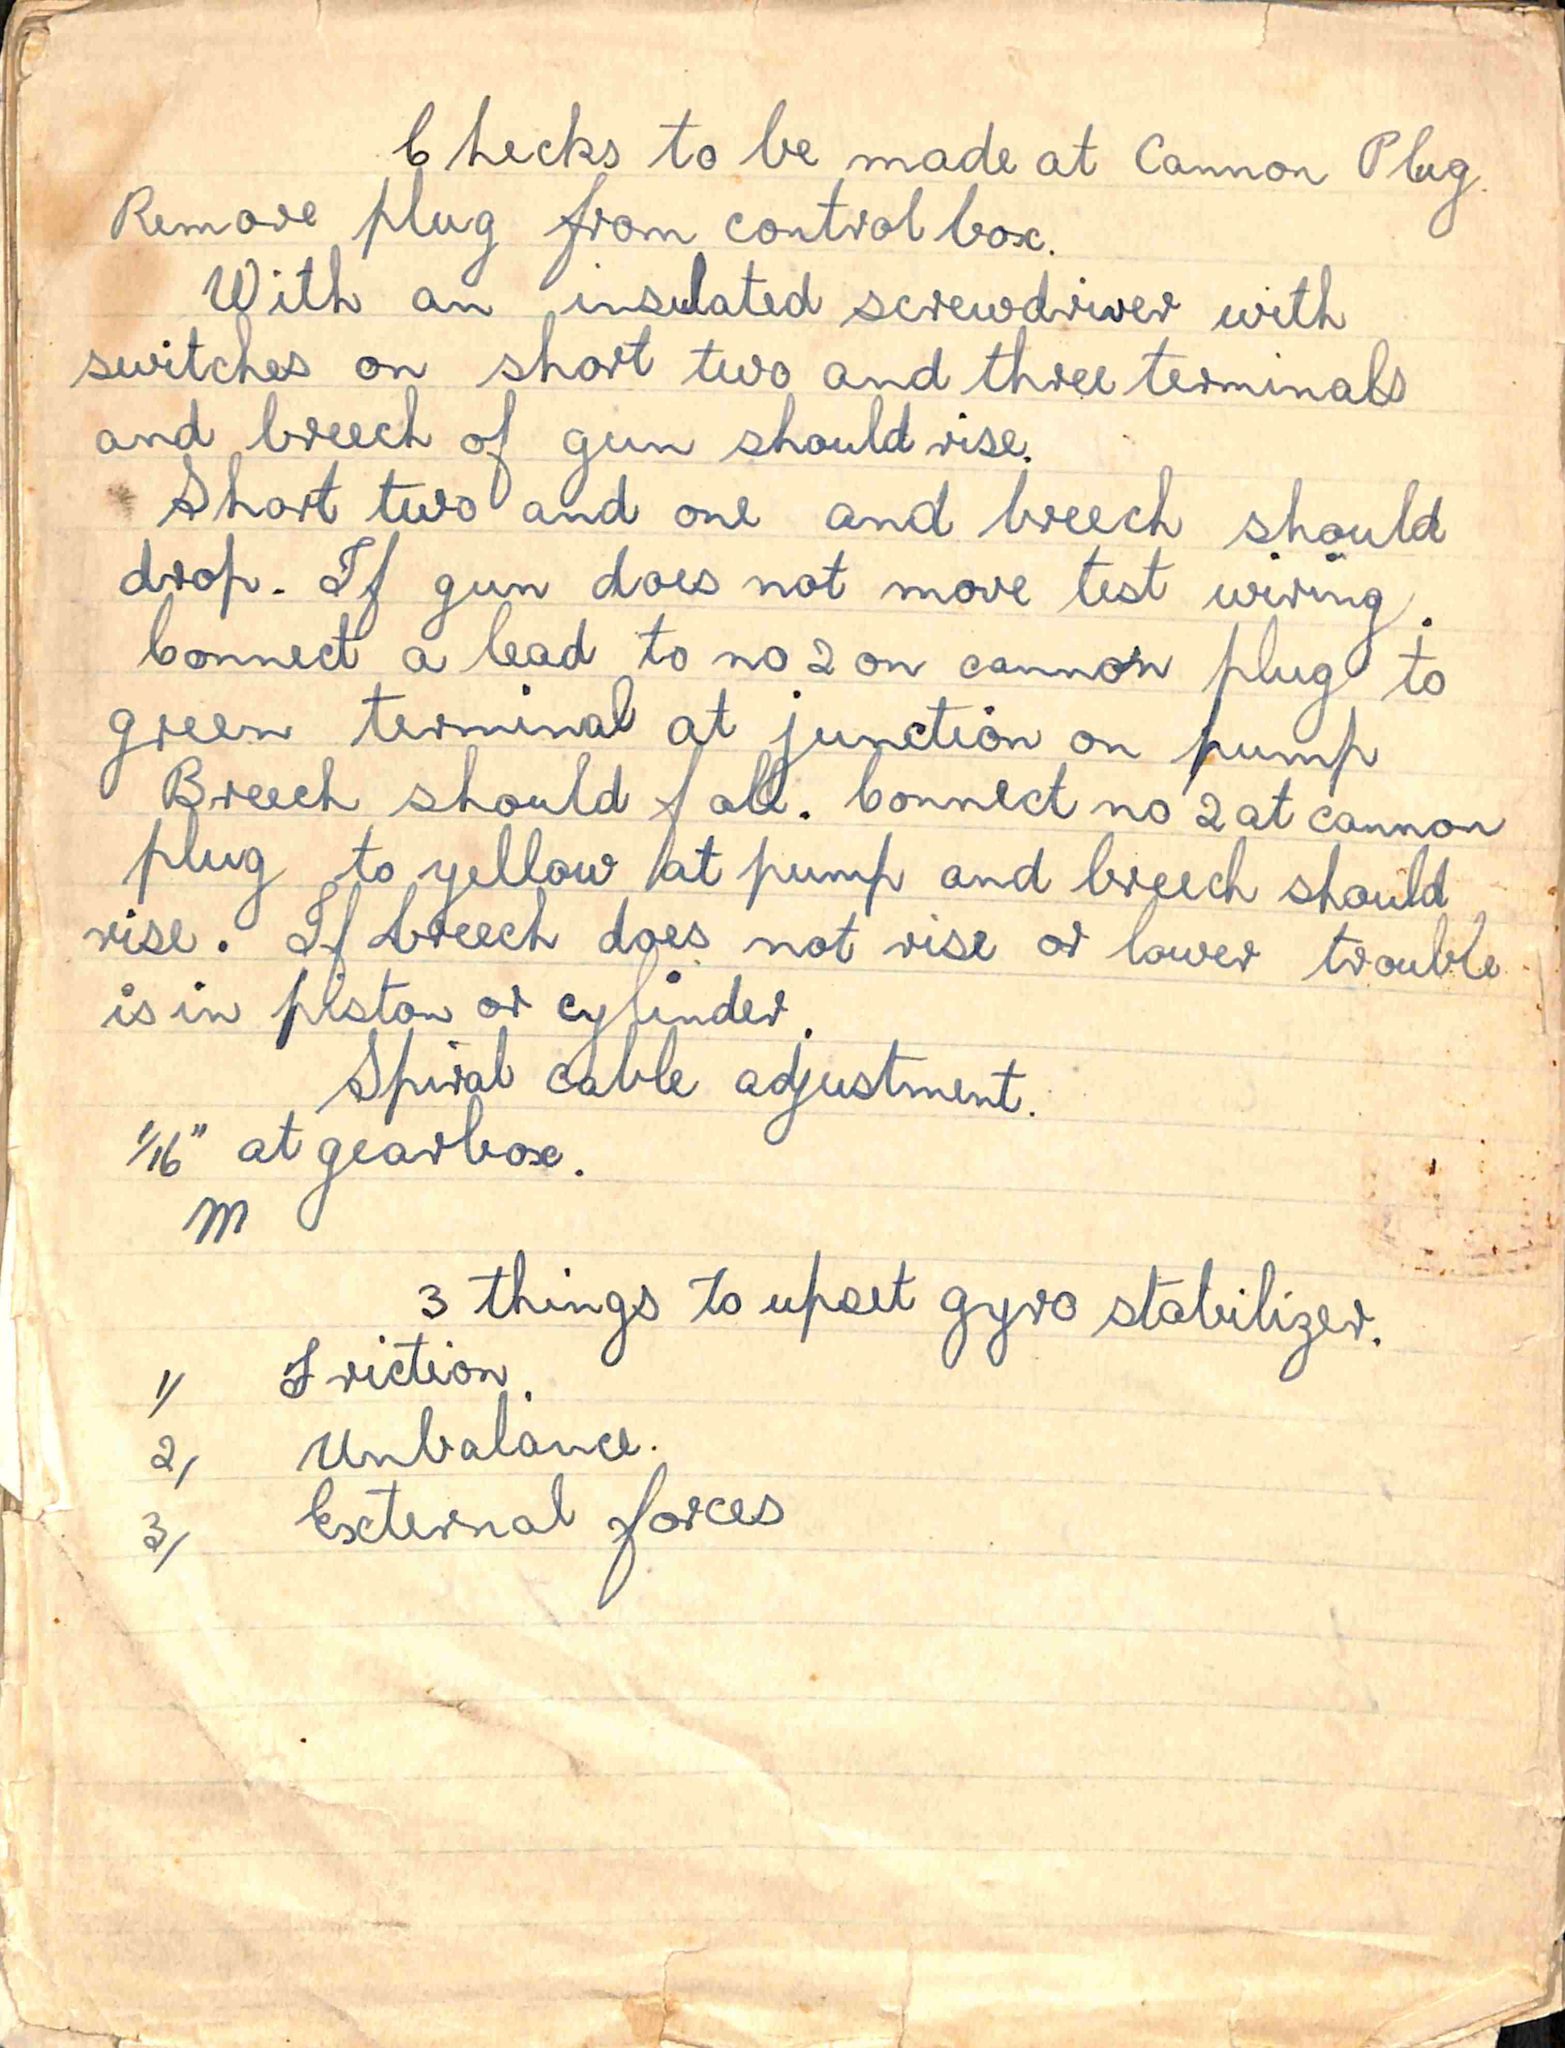 Checks to be made at Cannon Plug.
Remove plug from control box.
With an insulated screwdriver with
switches on short two and three terminals
and breech of gun should rise.
Short two and one and breech should
drop. If gun does not move test wiring.
Connect a lead to no 2 on cannon plug to
green terminal at junction on pump
Breech should fall. Connect no 2 at cannon
plug to yellow at pump and breech should
rise. If breech does not rise or lower trouble
is in piston or cylinder.
Spiral cable adjustment.
1/16" at gearbox.
M
3 things to upset gyro stabilizer.
1/ Friction.
2/ Unbalance.
3/ External forces